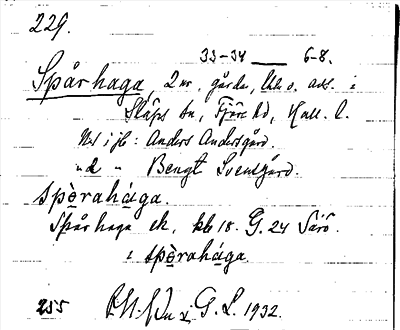 229.
33-34 — 6-8.
Spårhaga, 2 nr, gårdar, o. avs. i
Släps sn, Fjäre hd, Hall. l.
Nr i jb: Anders Andersgård.
"d " Bengt Svensgård.
spòrahága.
Spårhaga ek. kb 18. G. 24 Särö.
i spòrahága
255 i G. L. 1932.